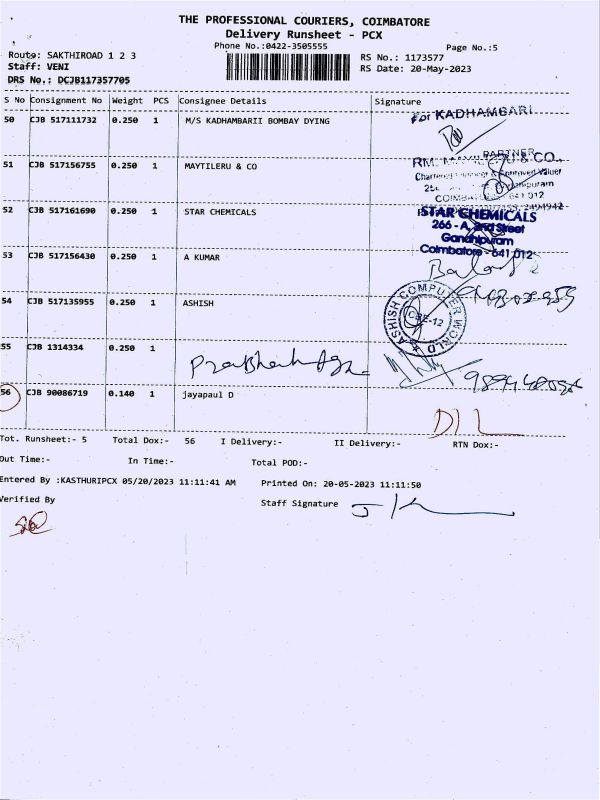 THE PROFESSIONAL COURIERS, COIMBATORE
Delivery Runsheet - PCX
Phone No.:0422-3505555
Page No.:5
Route: SAKTHIROAD 1 2 3
RS No.: 1173577
Staff: VENI
RS Date: 20-May-2023
DRS No.: DCJB117357705
S No Consignment No Weight PCS Consignee Details Signature
50 CJB 517111732 0.250 1 M/S KADHAMBARII BOMBAY DYING
For KADHAMBARI
PARTNER
51 CJB 517156755 0.250 1 MAYTILERU & CO
& CO.,
Chartered Engineer & Approved Valuer
COIMBATORE 641 012
52 CJB 517161690 0.250 1 STAR CHEMICALS
STAR CHEMICALS
266 - A, 2nd Street
Gandhipuram
Coimbatore - 641 012
53 CJB 517156430 0.250 1 A KUMAR
54 CJB 517135955 0.250 1 ASHISH
ASHISH COMPUTER WORLD
CBE-12
55 CJB 1314334 0.250 1
56 CJB 90086719 0.140 1 jayapaul D
Tot. Runsheet:- 5 Total Dox:- 56 I Delivery:- II Delivery:- RTN Dox:-
Out Time:- In Time:- Total POD:-
Entered By :KASTHURIPCX 05/20/2023 11:11:41 AM Printed On: 20-05-2023 11:11:50
Verified By
Staff Signature